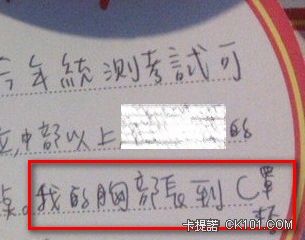 今年統測考試可
中部以上 的
我的胸部長到C罩
杯
卡提諾 CK101.COM